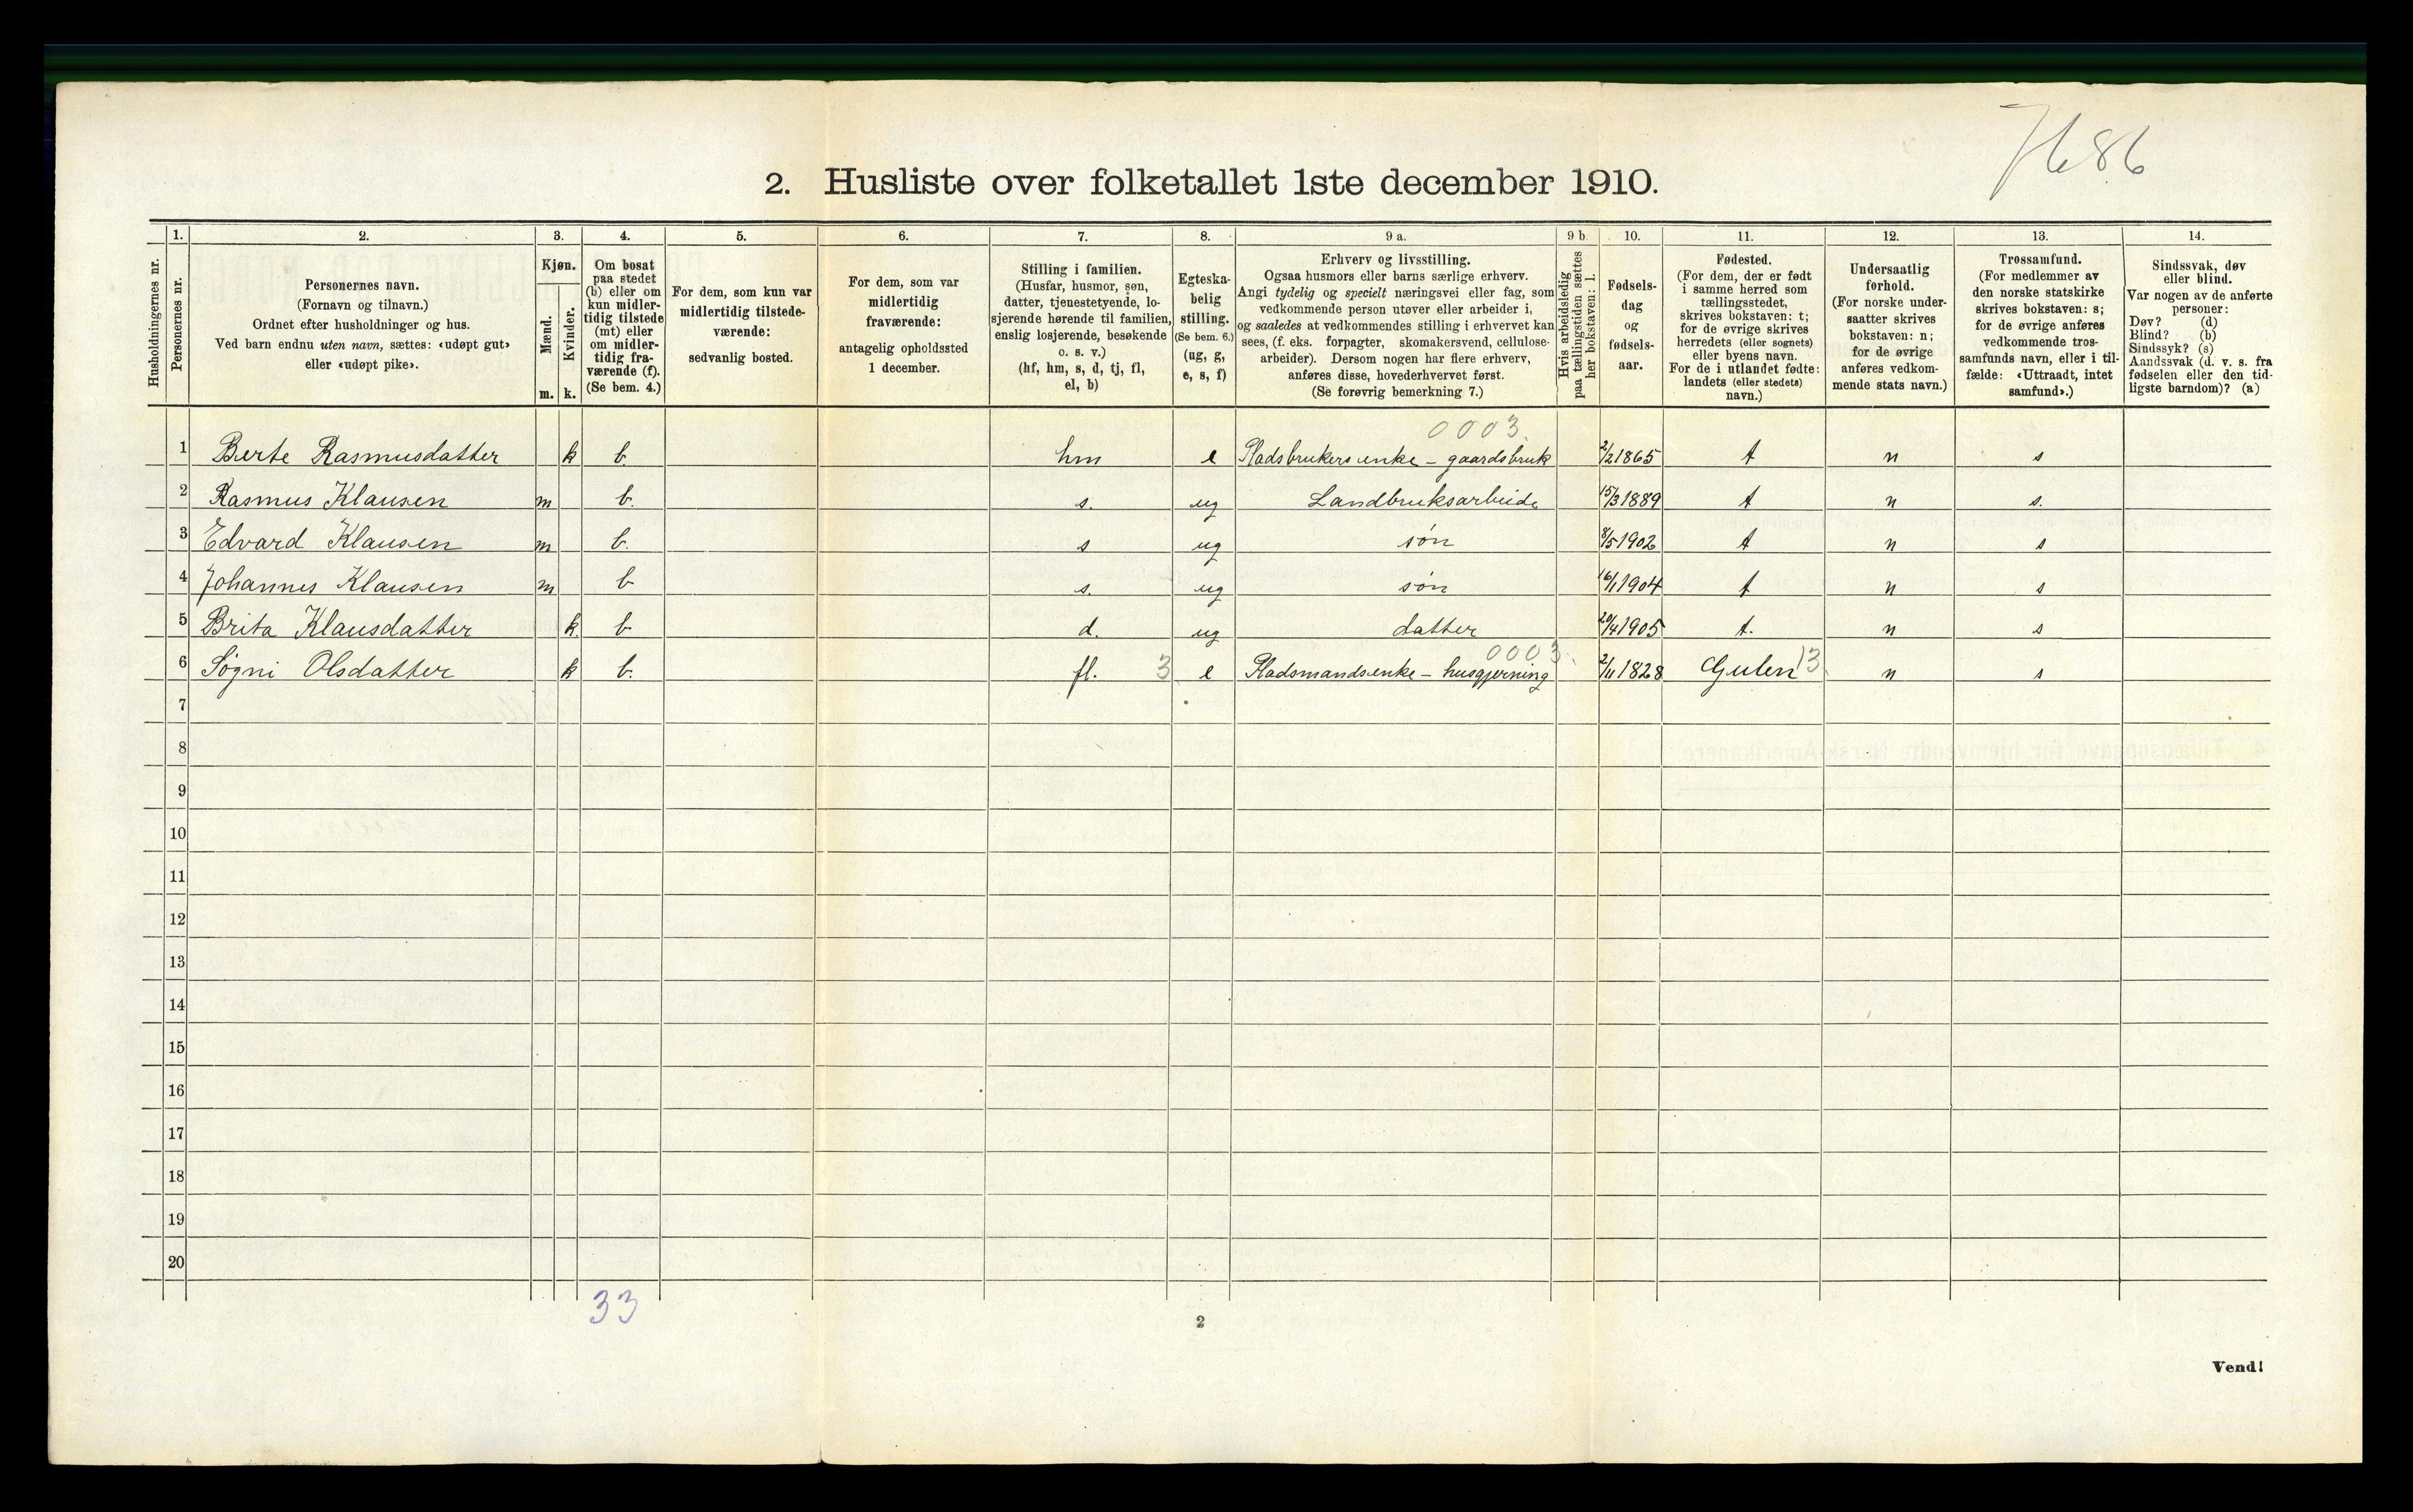 7686
2. Husliste over folketallet 1ste december 1910.
Husholdningernes nr.
1.
Personernes nr.
2.
Personernes navn.
(Fornavn og tilnavn.)
Ordnet efter husholdninger og hus.
Ved barn endnu uten navn, sættes: «udøpt gut»
eller «udøpt pike».
3.
Kjøn.
Mænd.
Kvinder.
m. k.
4.
Om bosat
paa stedet
(b) eller om
kun midler-
tidig tilstede
(mt) eller
om midler-
tidig fra-
værende (f).
(Se bem. 4.)
5.
For dem, som kun var
midlertidig tilstede-
værende:
sedvanlig bosted.
6.
For dem, som var
midlertidig
fraværende:
antagelig opholdssted
1 december.
7.
Stilling i familien.
(Husfar, husmor, søn,
datter, tjenestetyende, lo-
sjerende hørende til familien,
enslig losjerende, besøkende
o. s. v.)
(hf, hm, s, d, tj, fl,
el, b)
8.
Egteska-
belig
stilling.
(Se bem. 6.)
(ug, g,
e, s, f)
9 a.
Erhverv og livsstilling.
Ogsaa husmors eller barns særlige erhverv.
Angi tydelig og specielt næringsvei eller fag, som
vedkommende person utøver eller arbeider i,
og saaledes at vedkommendes stilling i erhvervet kan
sees, (f. eks. forpagter, skomakersvend, cellulose-
arbeider). Dersom nogen har flere erhverv,
anføres disse, hovederhvervet først.
(Se forøvrig bemerkning 7.)
9 b
Hvis arbeidsledig
paa tællingstiden sættes
her bokstaven: l.
10.
Fødsels-
dag
og
fødsels-
aar.
11.
Fødested.
(For dem, der er født
i samme herred som
tællingsstedet,
skrives bokstaven: t;
for de øvrige skrives
herredets (eller sognets)
eller byens navn.
For de i utlandet fødte:
landets (eller stedets)
navn.)
12.
Undersaatlig
forhold.
(For norske under-
saatter skrives
bokstaven: n;
for de øvrige
anføres vedkom-
mende stats navn.)
13.
Trossamfund.
(For medlemmer av
den norske statskirke
skrives bokstaven: s;
for de øvrige anføres
vedkommende tros-
samfunds navn, eller i til-
fælde: «Uttraadt, intet
samfund».)
14.
Sindssvak, døv
eller blind.
Var nogen av de anførte
personer:
Døv? (d)
Blind? (b)
Sindssyk? (s)
Aandssvak (d. v. s. fra
fødselen eller den tid-
ligste barndom)? (a)
0003.
1 Berte Rasmusdatter k b. hm e Pladsbrukersenke – gaardsbruk 2/2 1865 t n s
2 Rasmus Klausen m b. s. ug Landbruksarbeide 15/3 1889 t n s.
3 Edvard Klausen m b. s ug søn 8/5 1902 t n s
4 Johannes Klausen m b s. ug søn 16/1 1904 t n s
5 Brita Klausdatter k. b d. ug datter 20/4 1905 t. n s
0003.
6 Søgni Olsdatter k b. fl. 3 e Pladsmandsenke – husgjerning 2/11 1828 Gulen 13. n s
7
8
9
10
11
12
13
14
15
16
17
18
19
20
33
2
Vend!